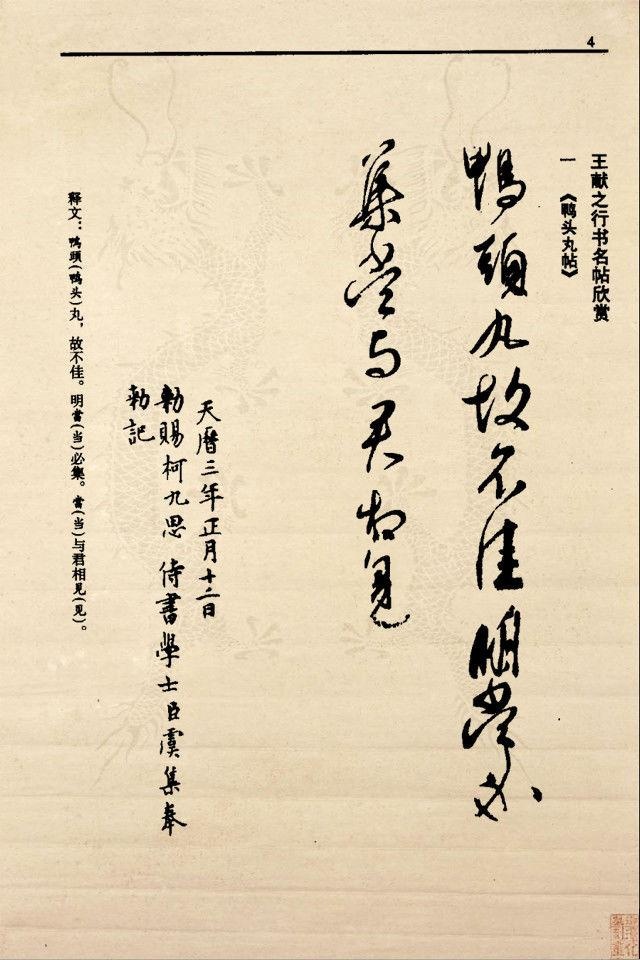 4
王献之行书名帖欣赏
一 《鸭头丸帖》
鴨頭丸故不佳明當必
集當与君相見
天曆三年正月十二日
勅賜柯九思侍書學士臣虞集奉
勅記
释文：鴨頭(鸭头)丸，故不佳。明當(当)必集。當(当)与君相見(见)。